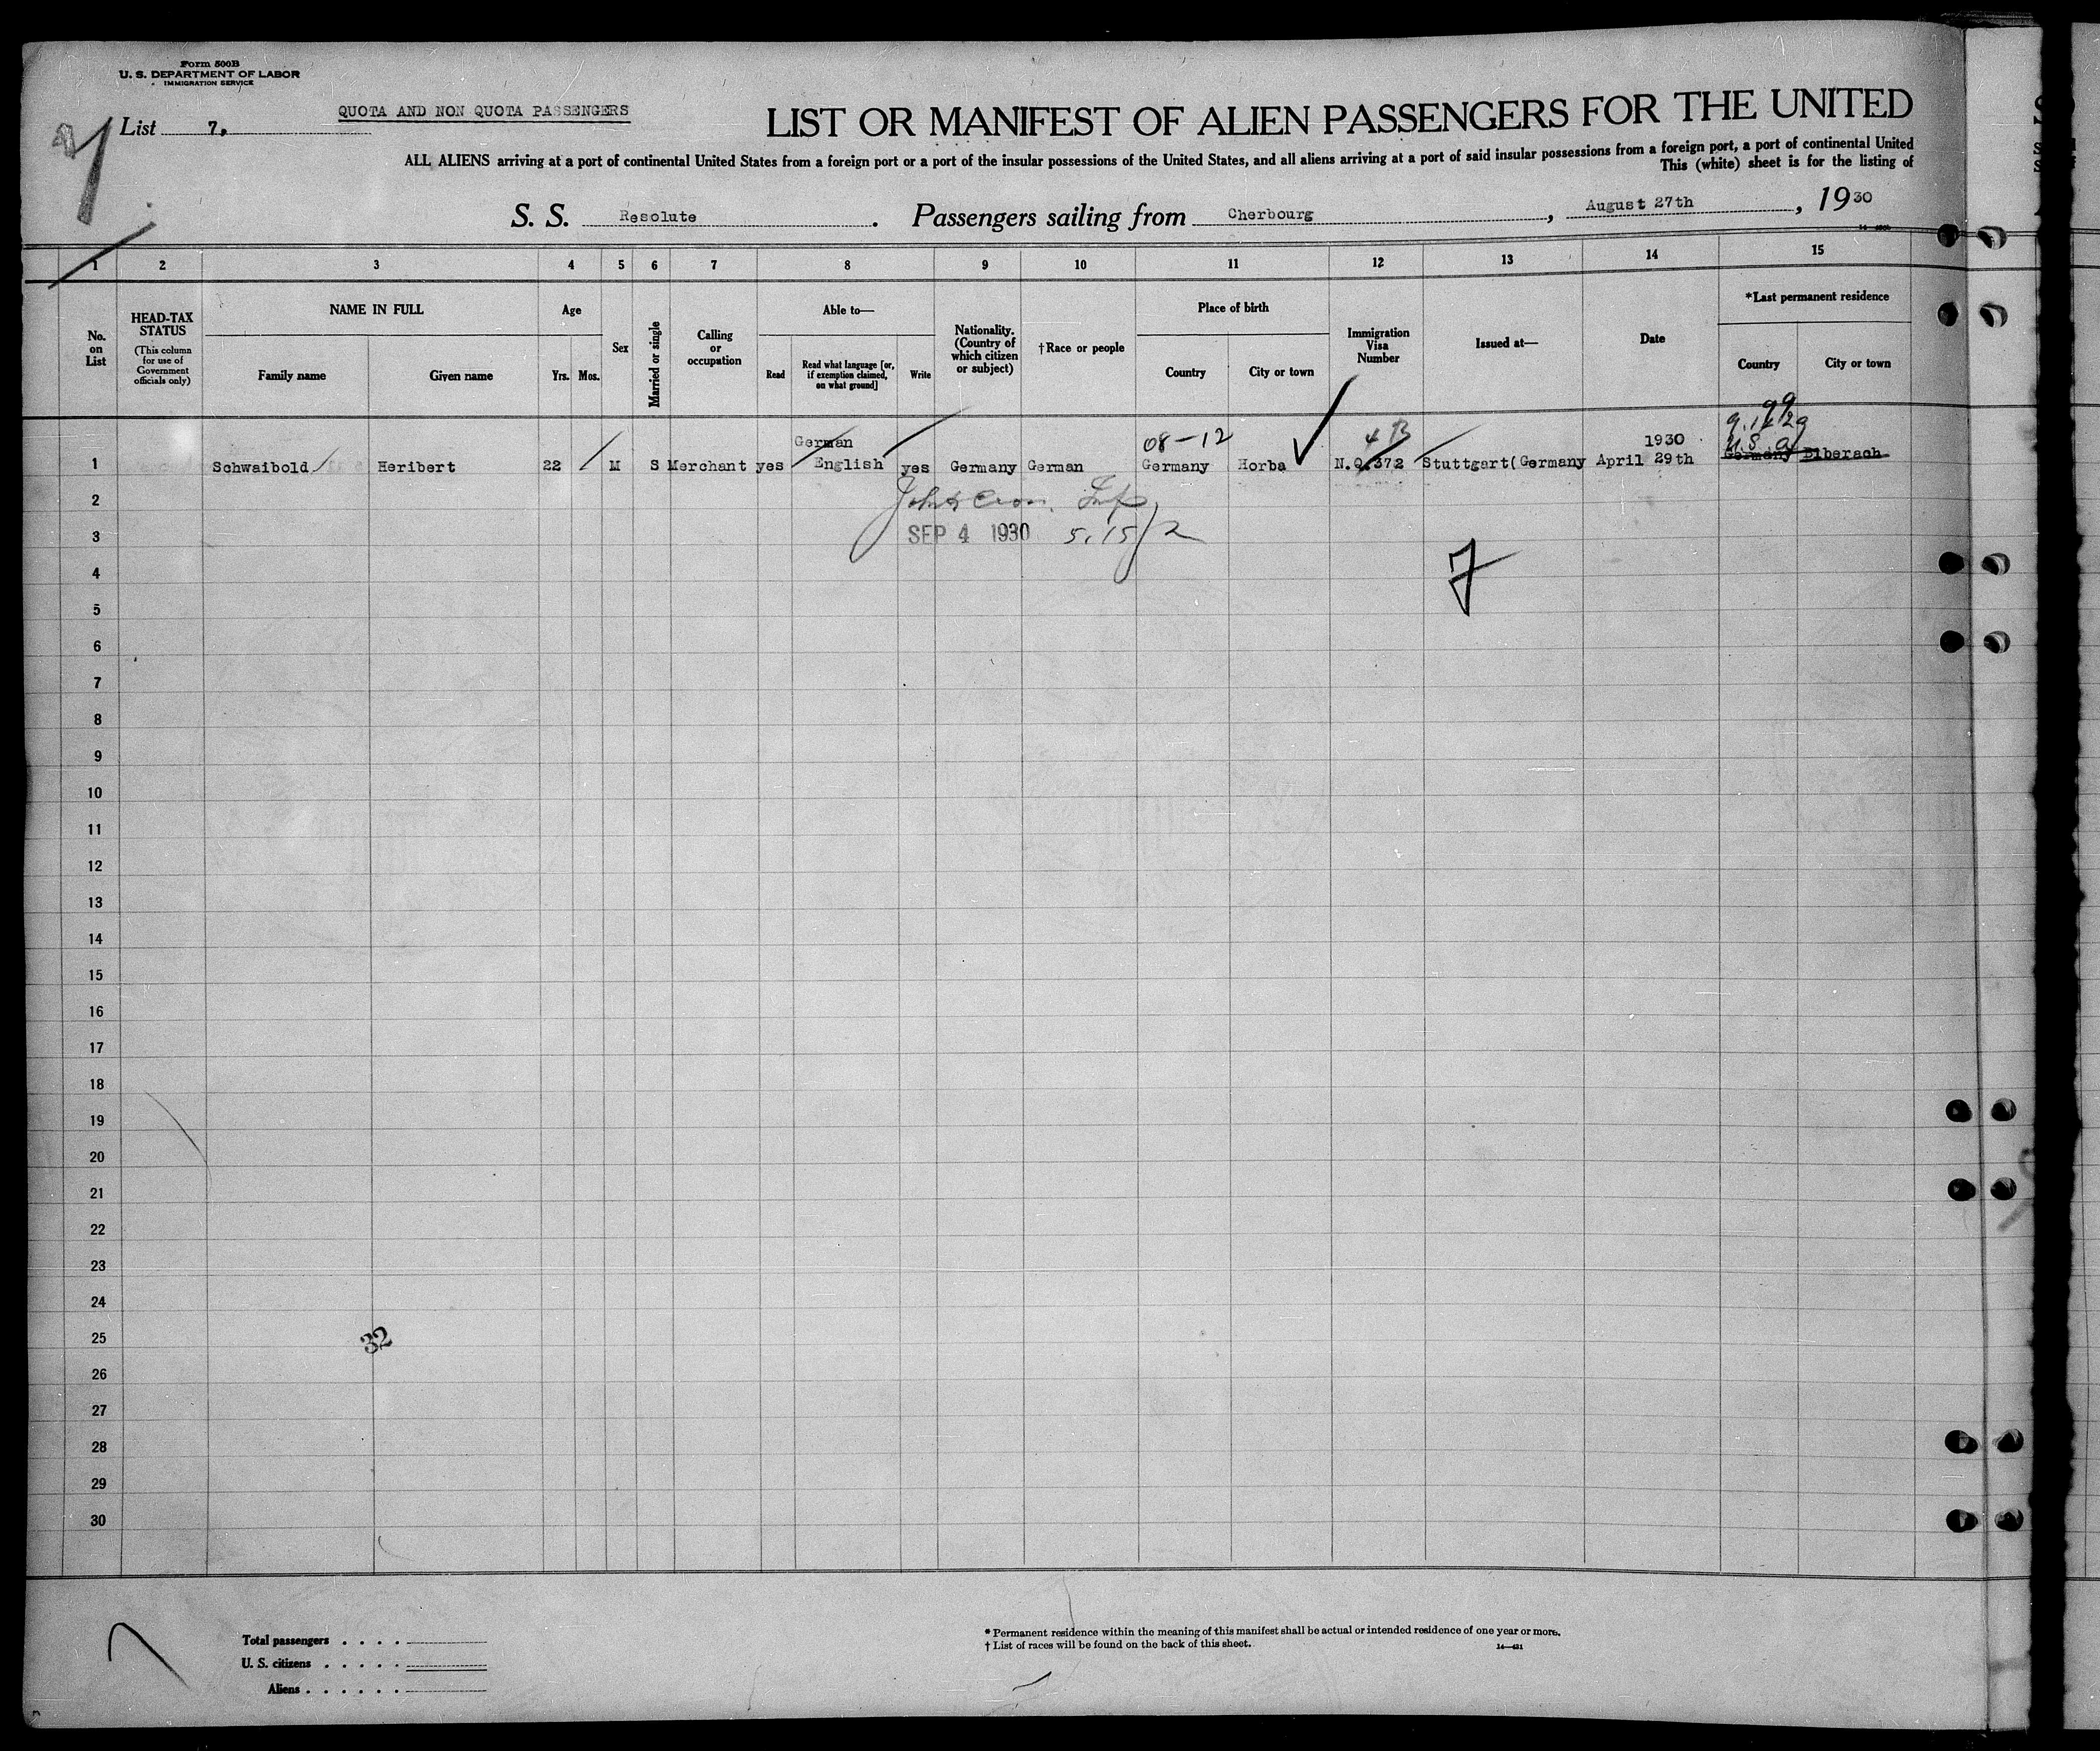 Form 500B
U. S. DEPARTMENT OF LABOR
IMMIGRATION SERVICE
List 7.
QUOTA AND NON QUOTA PASSENGERS
LIST OR MANIFEST OF ALIEN PASSENGERS FOR THE UNITED
ALL ALIENS arriving at a port of continental United States from a foreign port or a port of the insular possessions of the United States, and all aliens arriving at a port of said insular possessions from a foreign port, a port of continental United
This (white) sheet is for the listing of
S. S. Resolute. Passengers sailing from Cherbourg, August 27th, 1930
1 2 3 4 5 6 7 8 9 10 11 12 13 14 15
No. on List
HEAD-TAX STATUS
(This column for use of Government officials only)
NAME IN FULL
Family name
Given name
Age
Yrs. Mos.
Sex
Married or single
Calling or occupation
Able to—
Read
Read what language [or, if exemption claimed, on what ground]
Write
Nationality. (Country of which citizen or subject)
†Race or people
Place of birth
Country
City or town
Immigration Visa Number
Issued at—
Date
*Last permanent residence
Country
City or town
German 08-12 4 B 1930 U.S.a
1 Schwaibold Heribert 22 M S Merchant yes English yes Germany German Germany Horba N.Q.372 Stuttgart(Germany April 29th Germany Biberach
2
SEP 4 1930 5.15/2
3
4
7
5
6
7
8
9
10
11
12
13
14
15
16
17
18
19
20
21
22
23
24
25
32
26
27
28
29
30
Total passengers . . . .
U. S. citizens . . . . .
Aliens . . . . . .
* Permanent residence within the meaning of this manifest shall be actual or intended residence of one year or more.
† List of races will be found on the back of this sheet.
14—421